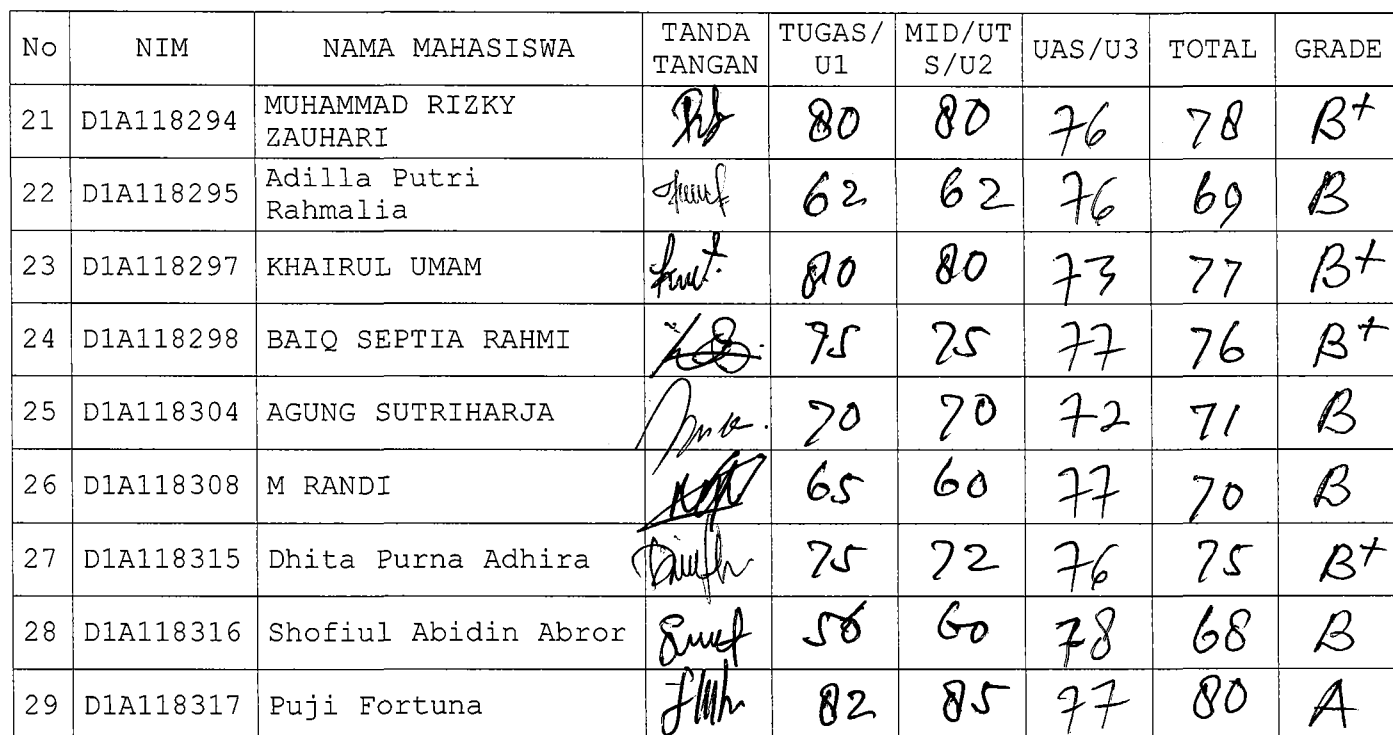 No NIM NAMA MAHASISWA TANDA TANGAN TUGAS/U1 MID/UTS/U2 UAS/U3 TOTAL GRADE
21 D1A118294 MUHAMMAD RIZKY ZAUHARI 80 80 76 78 B+
22 D1A118295 Adilla Putri Rahmalia 62 62 76 69 B
23 D1A118297 KHAIRUL UMAM 80 80 73 77 B+
24 D1A118298 BAIQ SEPTIA RAHMI 75 75 77 76 B+
25 D1A118304 AGUNG SUTRIHARJA 70 70 72 71 B
26 D1A118308 M RANDI 65 60 77 70 B
27 D1A118315 Dhita Purna Adhira 75 72 76 75 B+
28 D1A118316 Shofiul Abidin Abror 56 60 78 68 B
29 D1A118317 Puji Fortuna 82 85 77 80 A